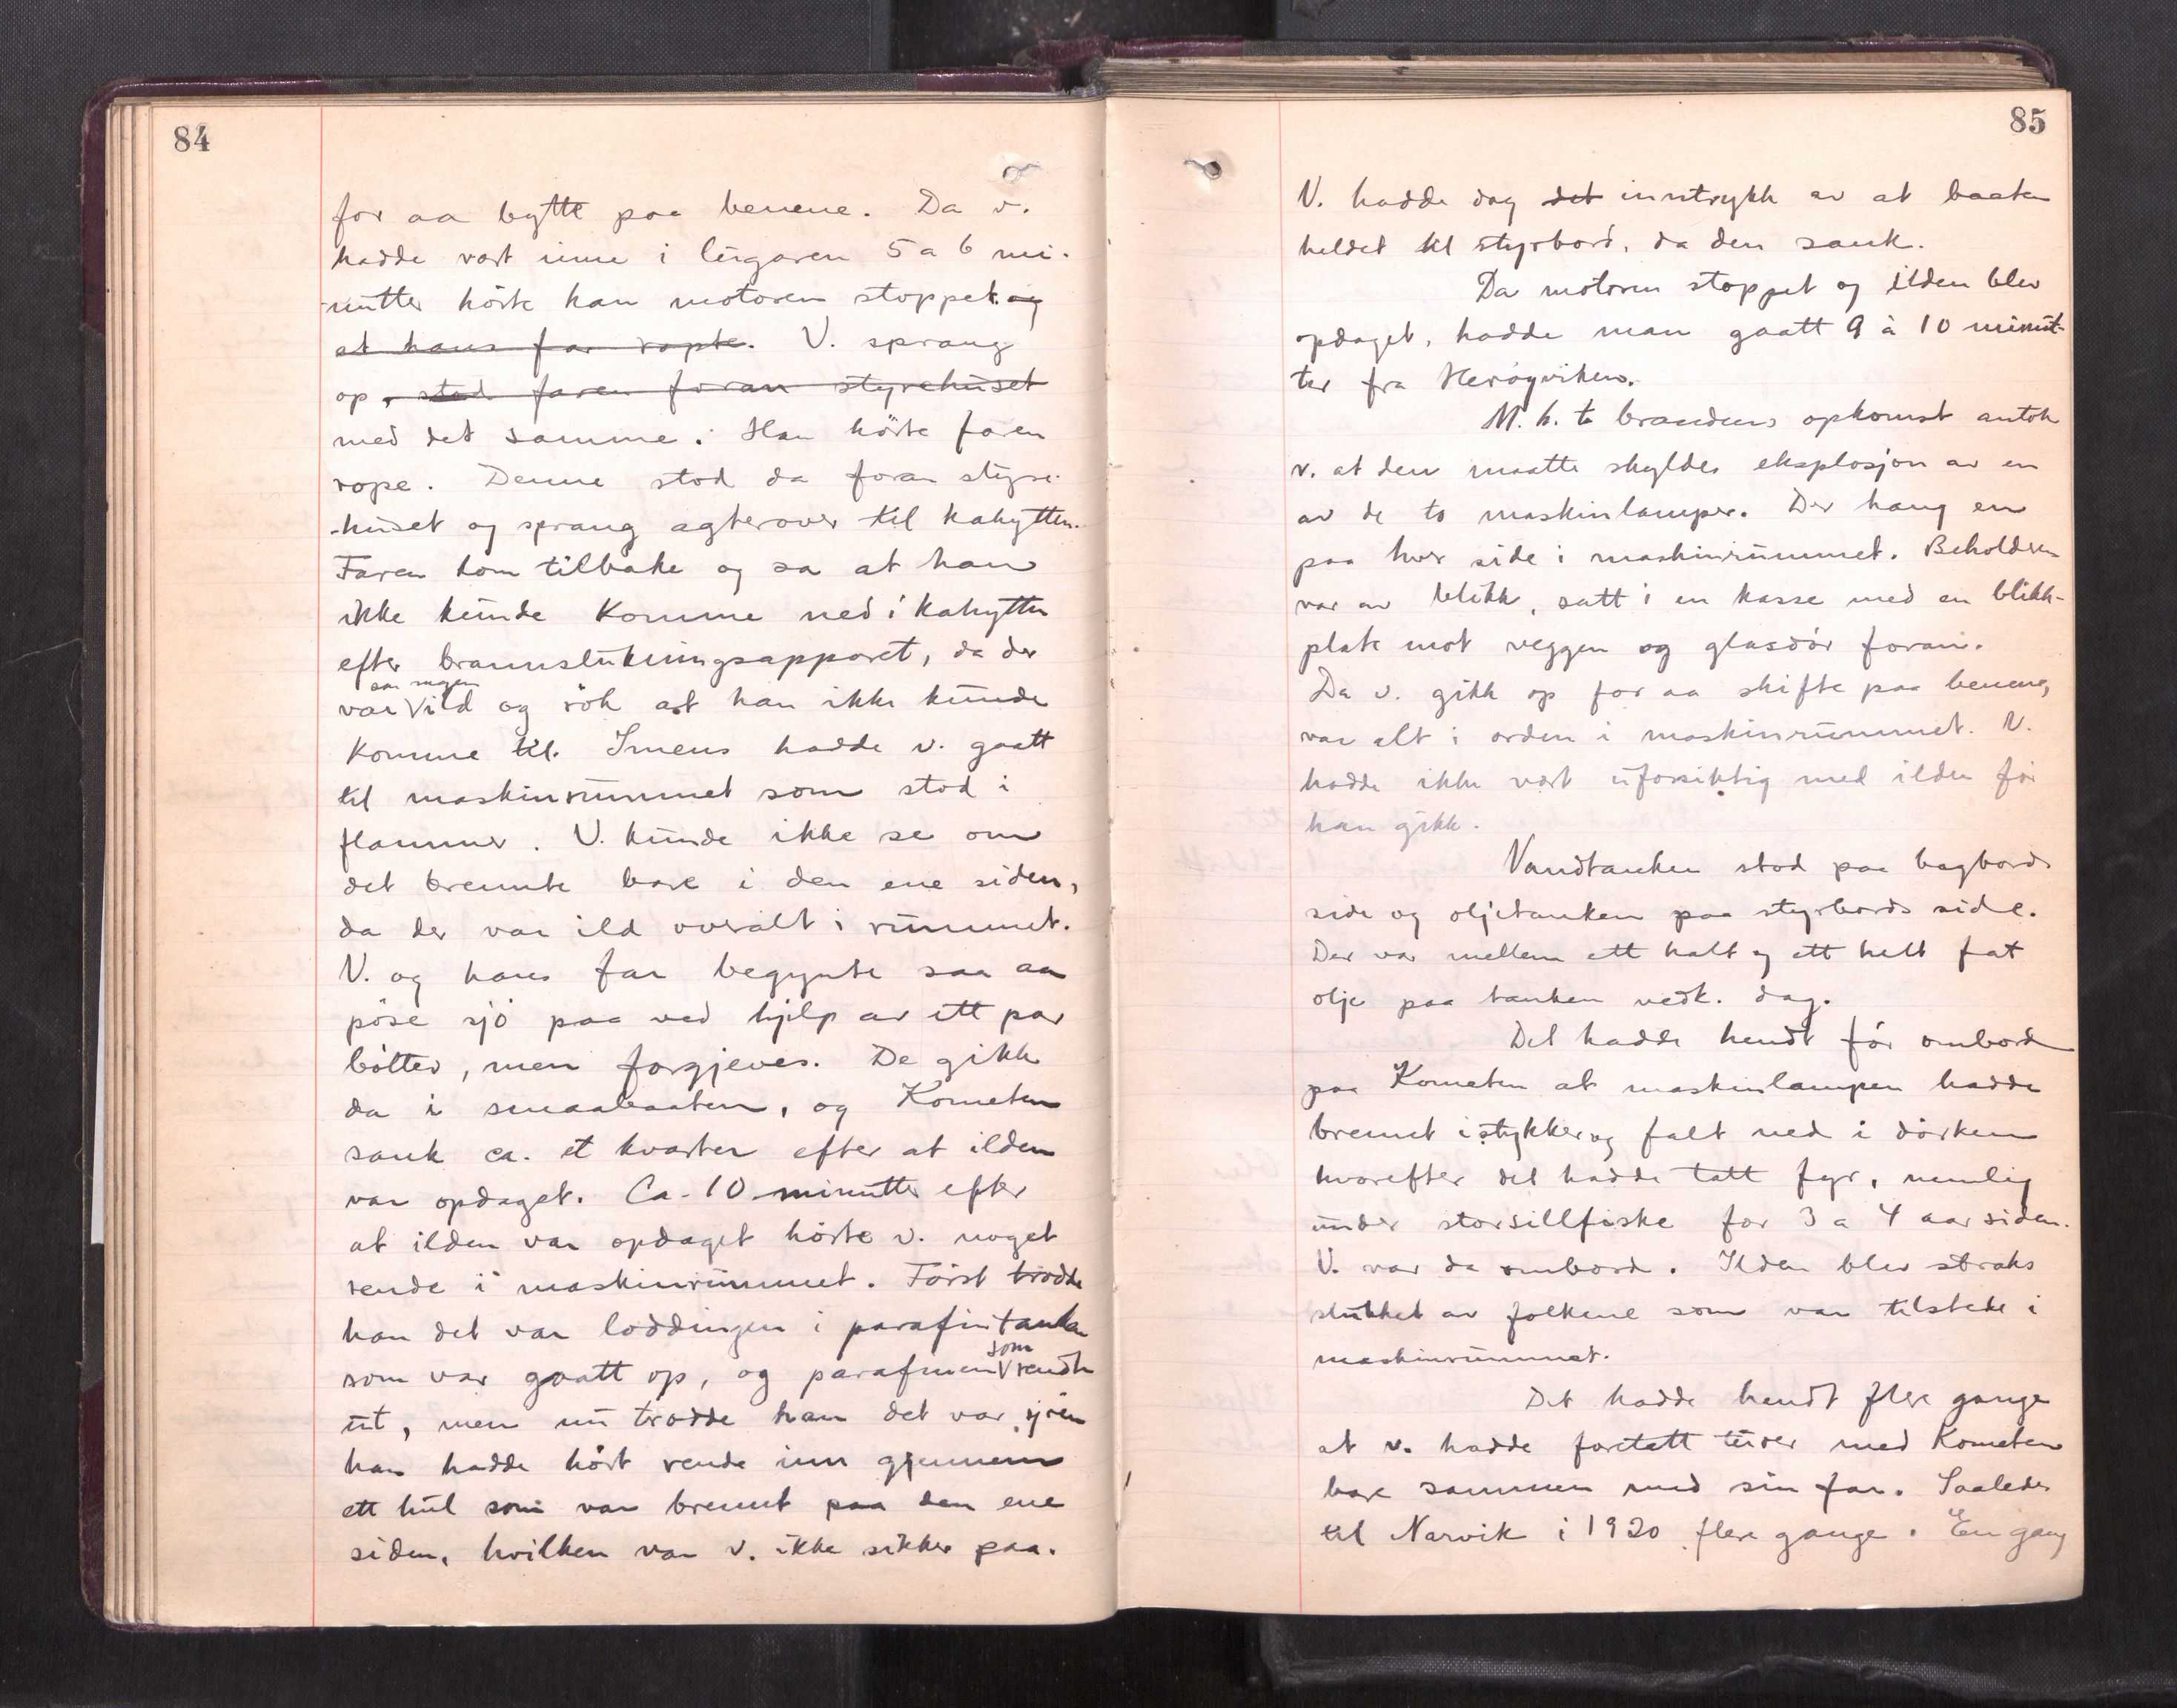 84
for aa bytte paa benene. Da v.
hadde vært inne i lugaren 5 a 6 mi-
nutter hörte han motoren stoppet. og
at hans far ropte. V. sprang
op, stod faren foran styrehuset
med det samme. Han hörte faren
rope. Denne stod da foran styre-
huset og sprang agterover til kahytten.
Faren kom tilbake og sa at han
ikke kunde komme ned i kahytten
efter brannslukningsapparet, da der
saa megen
var ild og rök at han ikke kunde
komme til. Imens hadde v. gaatt
til maskinrummet som stod i
flammer. V. kunde ikke se om
det brennte bare i den ene siden,
da der var ild overalt i rummet.
V. og hans far begynte saa aa
pöse sjö paa ved hjelp av ett par
bötter, men forgjeves. De gikk
da i smaabaaten, og Kometen
sank ca. et kvarter efter at ilden
var opdaget. Ca. 10 minutter efter
at ilden var opdaget hörte v. noget
rende i maskinrummet. Först trodde
han det var loddingen i parafintanken
som
som var gaatt op, og parafinen rendte
ut, men nu trodde han det var sjöen
han hadde hört rende inn gjennem
ett hul som var brennt paa den ene
siden, hvilken var v. ikke sikker paa.
85
V. hadde dog det inntrykk av at baaten
heldet til styrbord, da den sank.
Da motoren stoppet og ilden blev
opdaget, hadde man gaatt 9 à 10 minut-
ter fra Heröyviken.
M. h. t. brandens opkomst antok
v. at den maatte skyldes eksplosjon av en
av de to maskinlamper. Der hang en
paa hver side i maskinrummet. Beholderen
var av blikk, satt i en kasse med en blikk-
plate mot veggen og glasdör foran.
Da v. gikk op for aa skifte paa benene,
var alt i orden i maskinrummet. V.
hadde ikke vært uforsiktig med ilden för
han gikk.
Vandtanken stod paa bagbords
side og oljetanken paa styrbords side.
Der var mellem ett halt og ett helt fat
olje paa tanken vedk. dag.
Det hadde hendt för ombord
paa Kometen at maskinlampen hadde
brennet istykker og falt ned i dörken
hvorefter det hadde tatt fyr, nemlig
under storsillfiske for 3 a 4 aar siden.
V. var da ombord. Ilden blev straks
slukket av folkene som var tilstede i
maskinrummet.
Det hadde hendt flere gange
at v. hadde foretatt turer med Kometen
bare sammen med sin far. Saaledes
til Narvik i 1920 flere gange. En gang